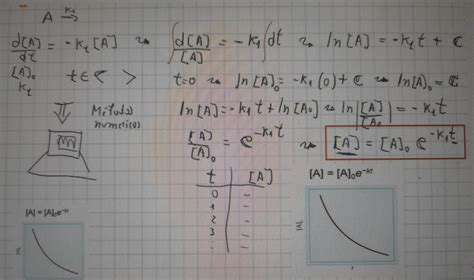 A →k₁
d[A]/dt = -k₁[A] ⤳ ∫d[A]/[A] = -k₁∫dt ⤳ ln[A] = -k₁t + C
[A]₀ t∈< >
k₁
t=0 ⤳ ln[A]₀ = -k₁(0) + C ⤳ ln[A]₀ = C
Métodos
numéricos
ln[A] = -k₁t + ln[A₀] ⤳ ln|[A]/[A₀| = -k₁t
[A]/[A]₀ = e^-k₁t ⤳ [A] = [A]₀ e^-k₁t
t [A]
0 -
1 -
2 -
3 -
[A] = [A]₀e^-kt
[A] = [A]₀e^-kt